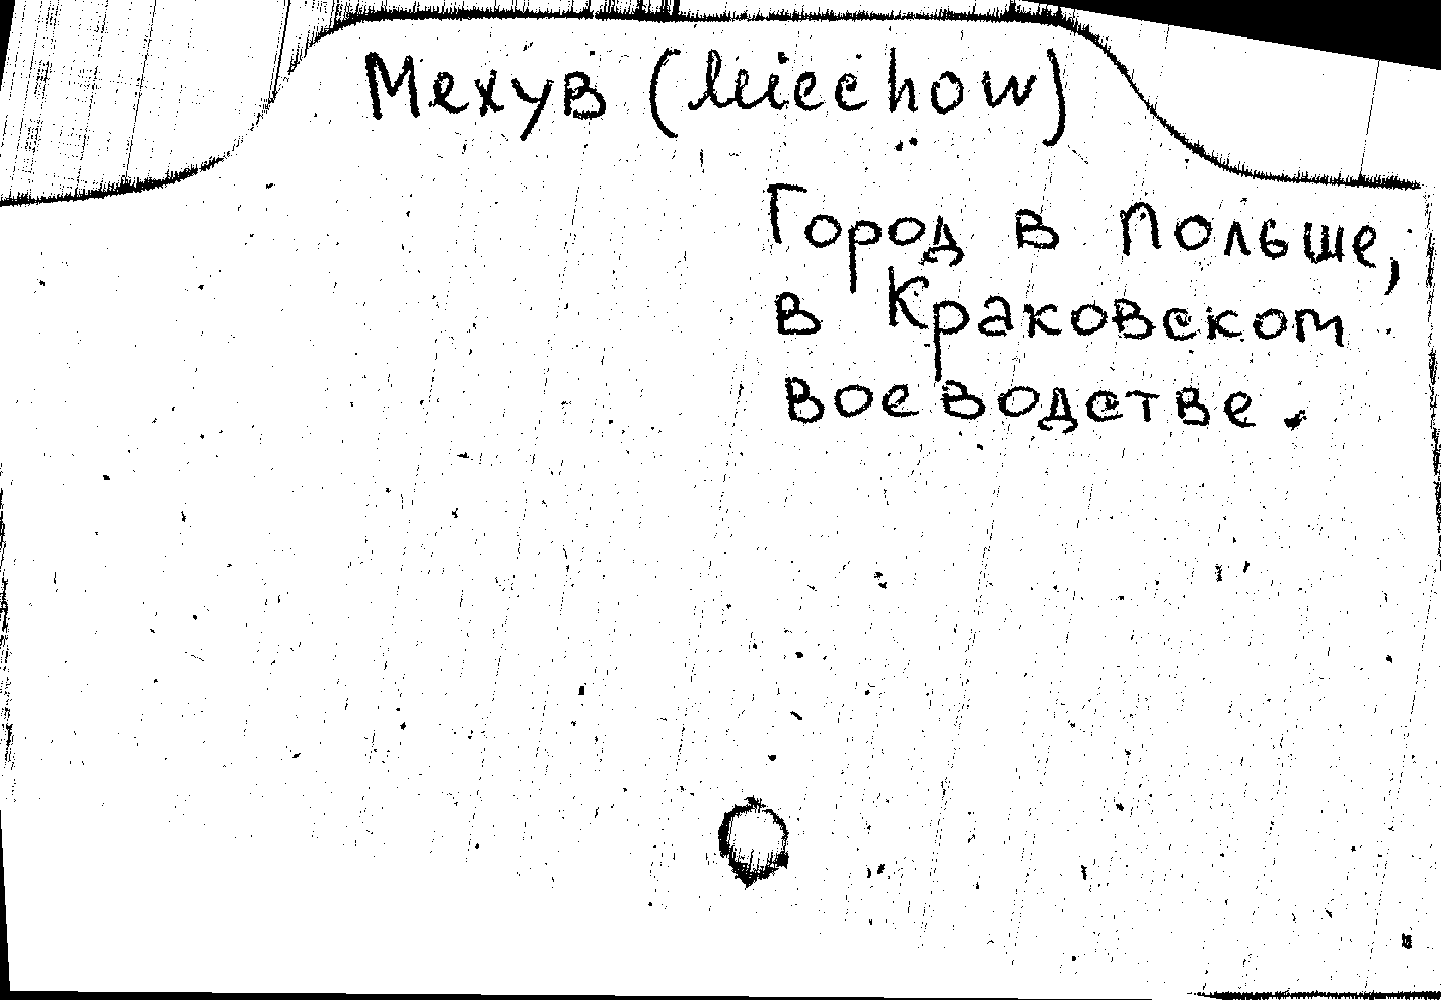 Мехув (Miechow)
Город в Польше,
в Краковском
воеводстве.